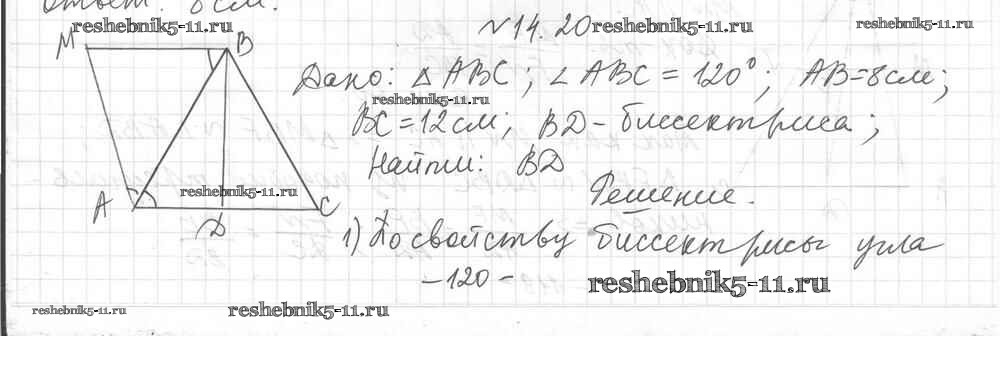 Ответ: 8 см.
reshebnik5-11.ru
№ 14.20 reshebnik5-11.ru
reshebnik5-11.ru
M
B
Дано: △ ABC; ∠ ABC = 120°; AB = 8 см;
reshebnik5-11.ru
BC = 12 см; BD - биссектриса;
Найти: BD
reshebnik5-11.ru
A
D
C
Решение.
1) По свойству биссектрисы угла
- 120 -
reshebnik5-11.ru
reshebnik5-11.ru
reshebnik5-11.ru